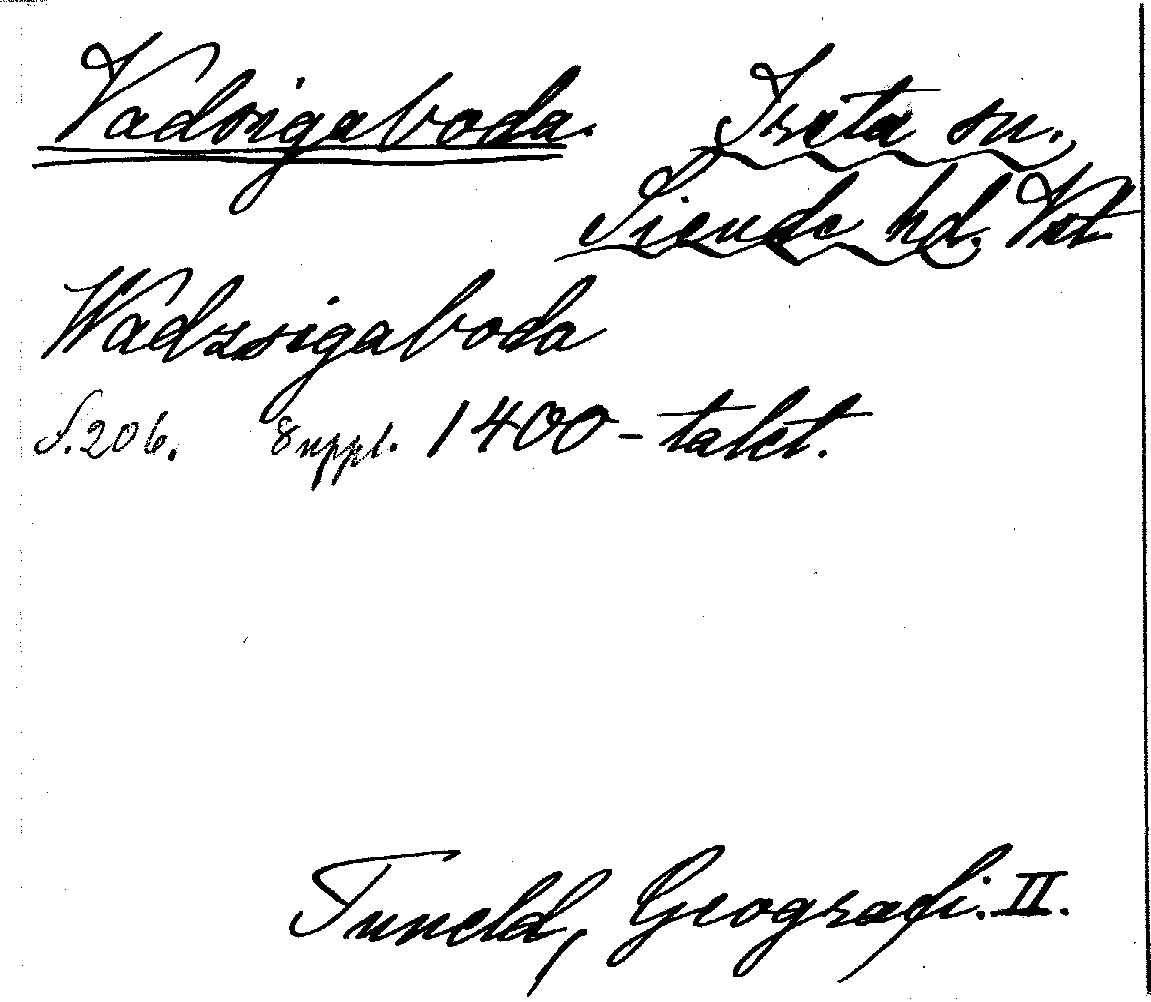 Vadsigaboda. Irsta sn.
Siende hd. Vstm
Wadzsigaboda
S. 206. Suppl. 1400-talet.
Tuneld, Geografi. II.